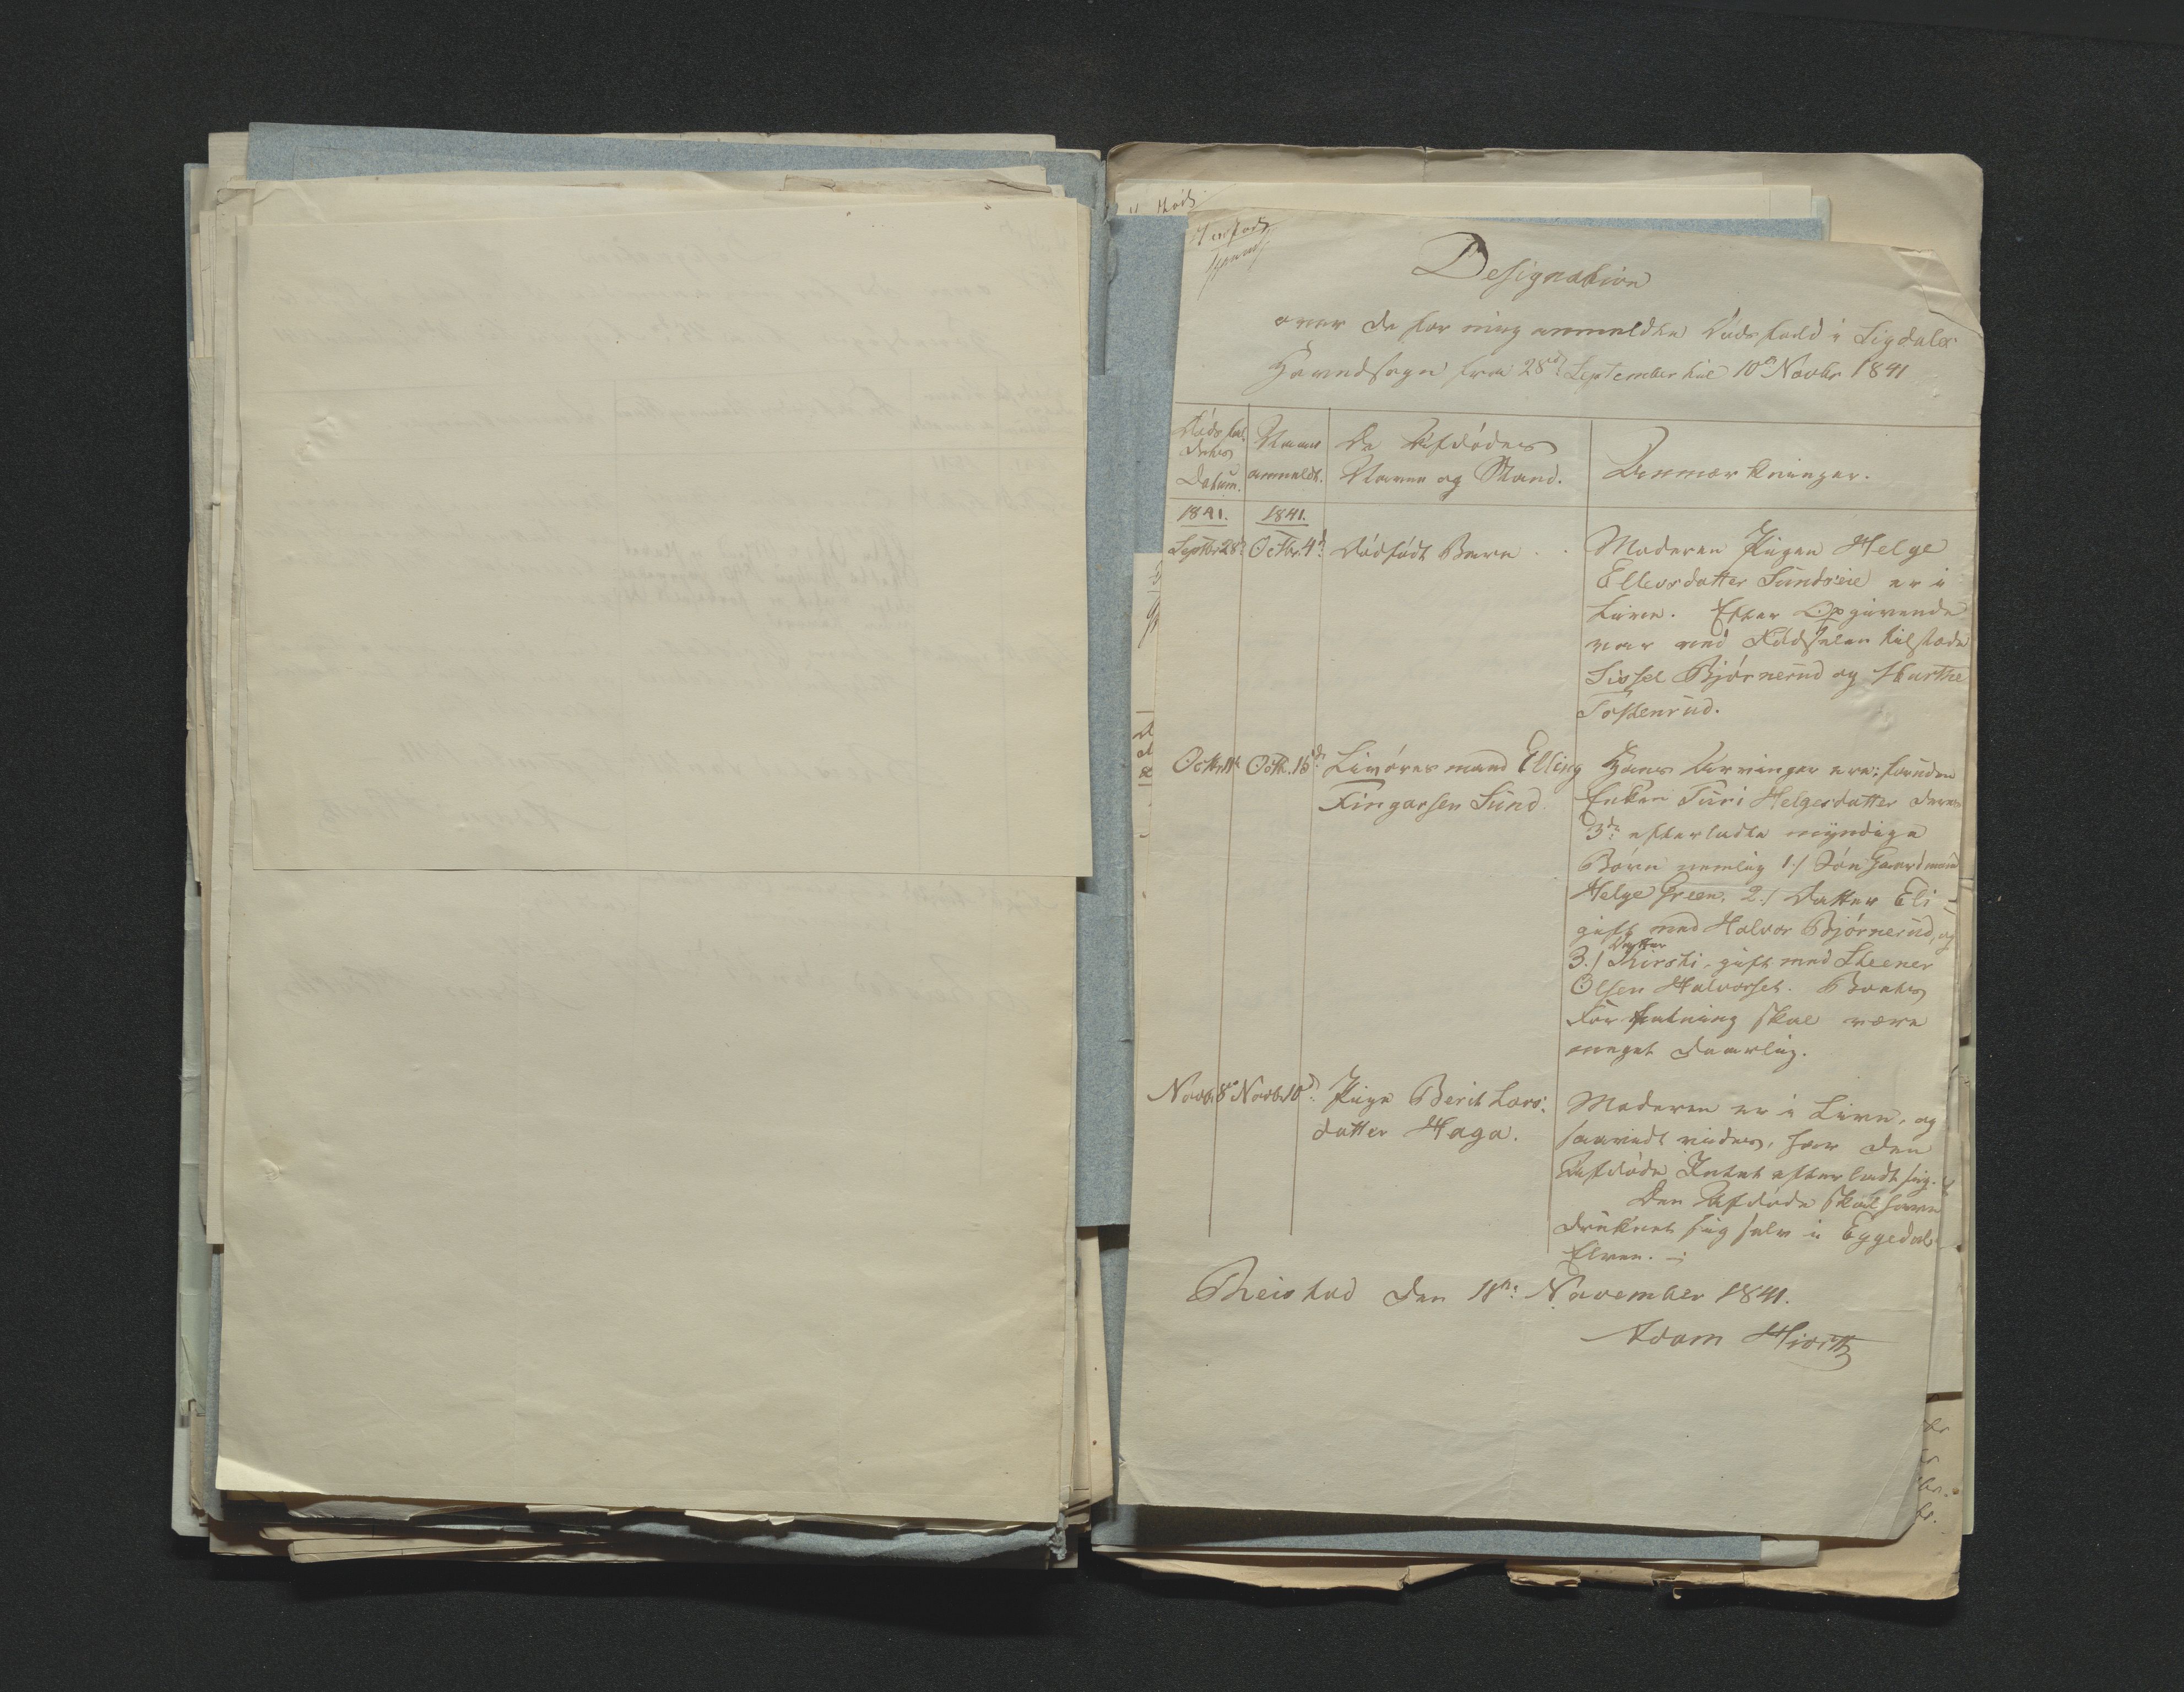 Designation
over de for mig anmeldte Dødsfald i Sigdals
Hovedsogn fra 28de September til 10de Novbr 1841
Dødsfal-
dets
Datum.
Naar
anmeldt.
De Afdødes
Navne og Stand.
Anmærkninger.
1841.
1841.
Septbr 28de
Octbr. 4de
Dødfødt Barn
Moderen Pigen Helge
Ellevsdatter Sundseie er i
Live. Efter Opgivende
var ved Fødselen tilstæde
Sissel Bjørnerud og Marthe
Toskenrud.
Octbr 11te
Octbr. 15de
Livøresmand Elling
Fingarsen Sund.
Hans Arvinger ere: foruden
Enken Turi Helgesdatter deres
3de efterladte myndige
Børn nemlig 1./ Søn Gaardmand
Helge Green, 2./ Datter Eli
gift med Halvor Bjørnerud, og
3./ Datter Kirsti, gift med Steener
Olsen Halvorset. Boets
Forfatning skal være
meget daarlig.
Novbr 8de
Novbr 10de
Pige Berit Lars-
datter Haga.
Moderen er i Live, og
saavidt vides, har den
Afdøde Intet efterladt sig.
Den Afdøde skal have
druknet sig selv i Eggedals
Elven.
Reistad den 11te November 1841.
Adam Hiorth